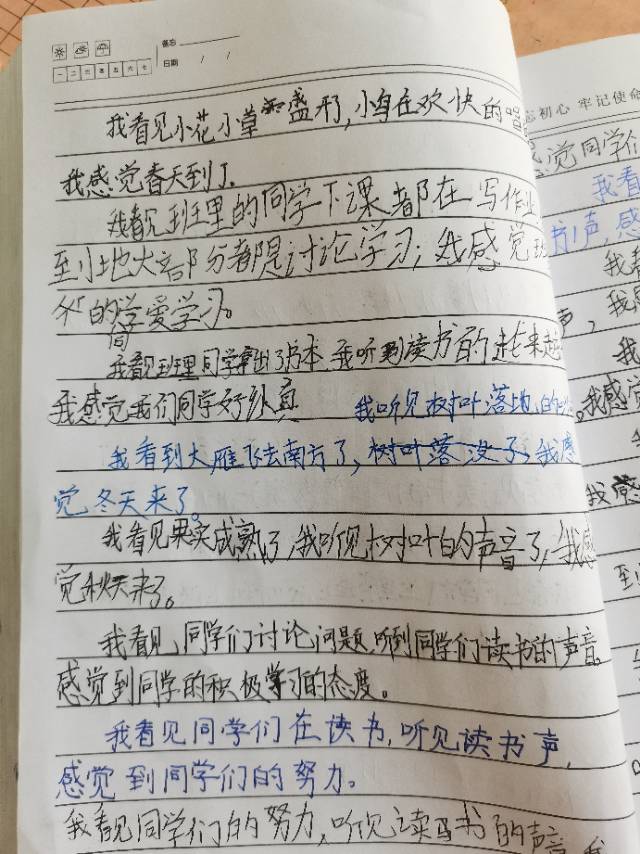 备忘
日期 / /
一 二 三 四 五 六 七
我看见小花小草 盛开了,小鸟在欢快的唱
我感觉春天到了.
我看见班里的同学下课都在写作业
到地大部分都是讨论学习,我感觉班
的同学爱学习。
我看见班里同学拿出了书本 我听到读书的 越来越
我感觉我们同学好认真 我听见树叶落地的
我看到大雁飞去南方了,树叶落没了,我感
觉冬天来了。
我看见果实成熟了,我听见树叶的声音了,我感
觉秋天来了。
我看见同学们讨论问题,听到同学们读书的声音,
感觉到同学的积极学习的态度。
我看见同学们在读书,听见读书声,
感觉到同学们的努力。
我看见同学们的努力,听见读书的声音,我
忘初心 牢记使命
觉同学们
我看
书声,感
我看
声,我
我
。我感觉
我感
到